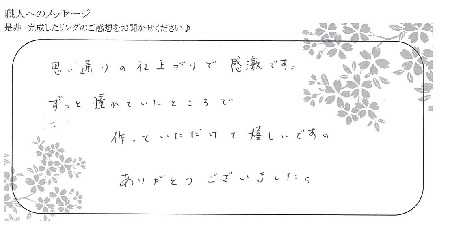 職人へのメッセージ
是非 完成したリングのご感想をお聞かせください♪
思い通りの仕上がりで 感激です。
ずっと憧れていたところで
作っていただけて嬉しいです。
ありがとうございました。